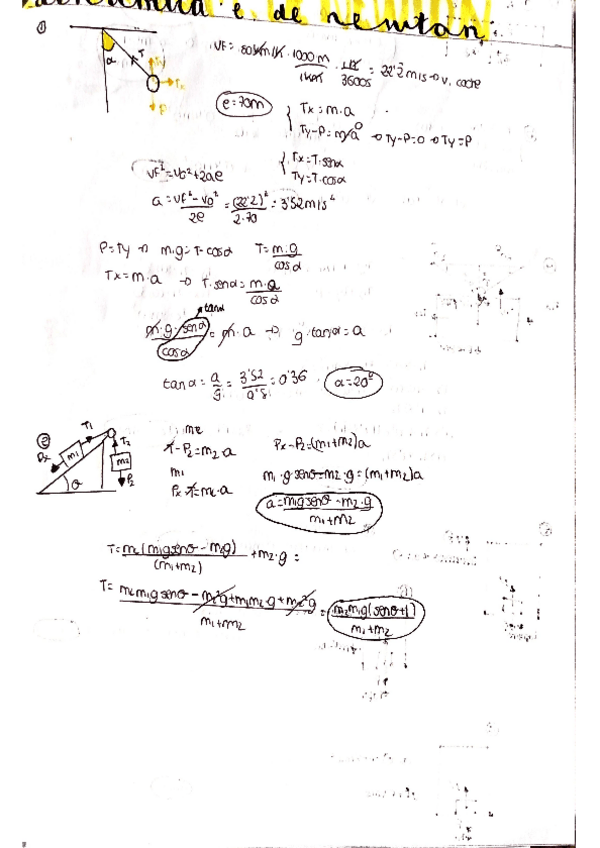 e de newton
①
α
T
Ty
Tx
P
VF = 80km/h · 1000m / 1km · 1h / 3600s = 22'2 m/s → v. coche
e = 70m
Tx = m·a
Ty-P = m/a 0 → Ty-P=0 → Ty=P
Tx = T·senα
Ty = T·cosα
VF² = Vo² + 2ae
a = VF² - Vo² / 2e = (22'2)² / 2·70 = 3'52 m/s²
P = Ty → m·g = T·cosα T = m·g / cosα
Tx = m·a → T·senα = m·a / cosα
tanα
m·g·senα / cosα = m·a → g·tanα = a
tanα = a/g = 3'52 / 9'8 = 0'36 α = 20º
②
Px
m1
T1
T2
m2
P2
θ
m2
T-P2 = m2·a Px-P2 = (m1+m2)a
m1
m1·g·senθ - m2·g = (m1+m2)a
Px-T = m1·a
a = m1g senθ - m2·g / m1+m2
T = m2(m1g senθ - m2g) / (m1+m2) + m2·g =
T = m2m1g senθ - m2²g + m1m2·g + m2²g / m1+m2 = m2m1g(senθ+1) / m1+m2